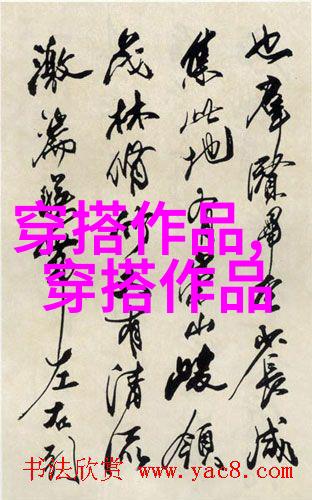 也群賢畢至少長咸
集此地有崇山峻領
茂林脩竹又有清流
激湍暎帶左右引
穿搭作品,
穿搭作品
书法欣赏 www.yac8.com